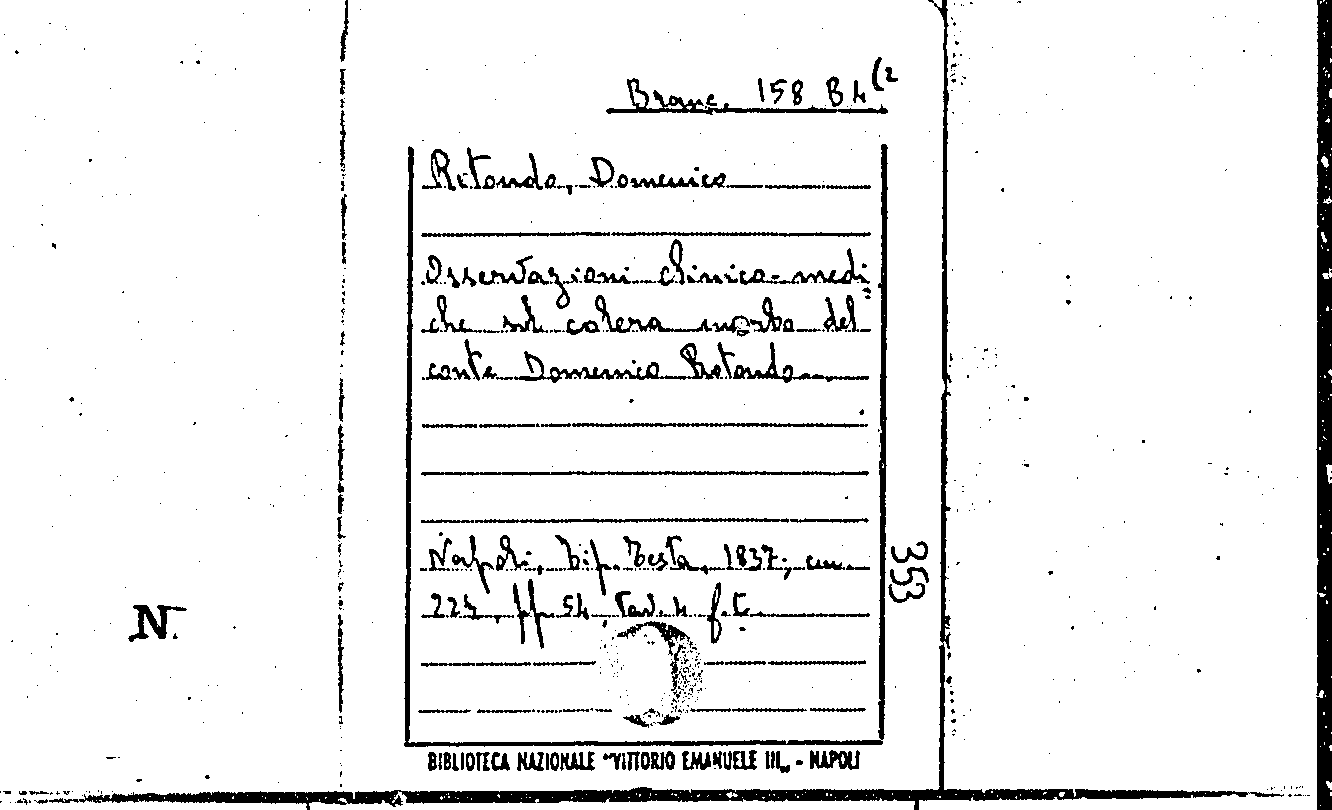 Branc. 158 B 4 (2
Rotondo, Domenico
Osservazioni clinico-medi
che sul colera morbo del
conte Domenico Rotondo
Napoli, Tip. Testa, 1837; cm.
22½, pp. 54, tav. 4 f.t.
353
N.
BIBLIOTECA NAZIONALE "VITTORIO EMANUELE III„ - NAPOLI